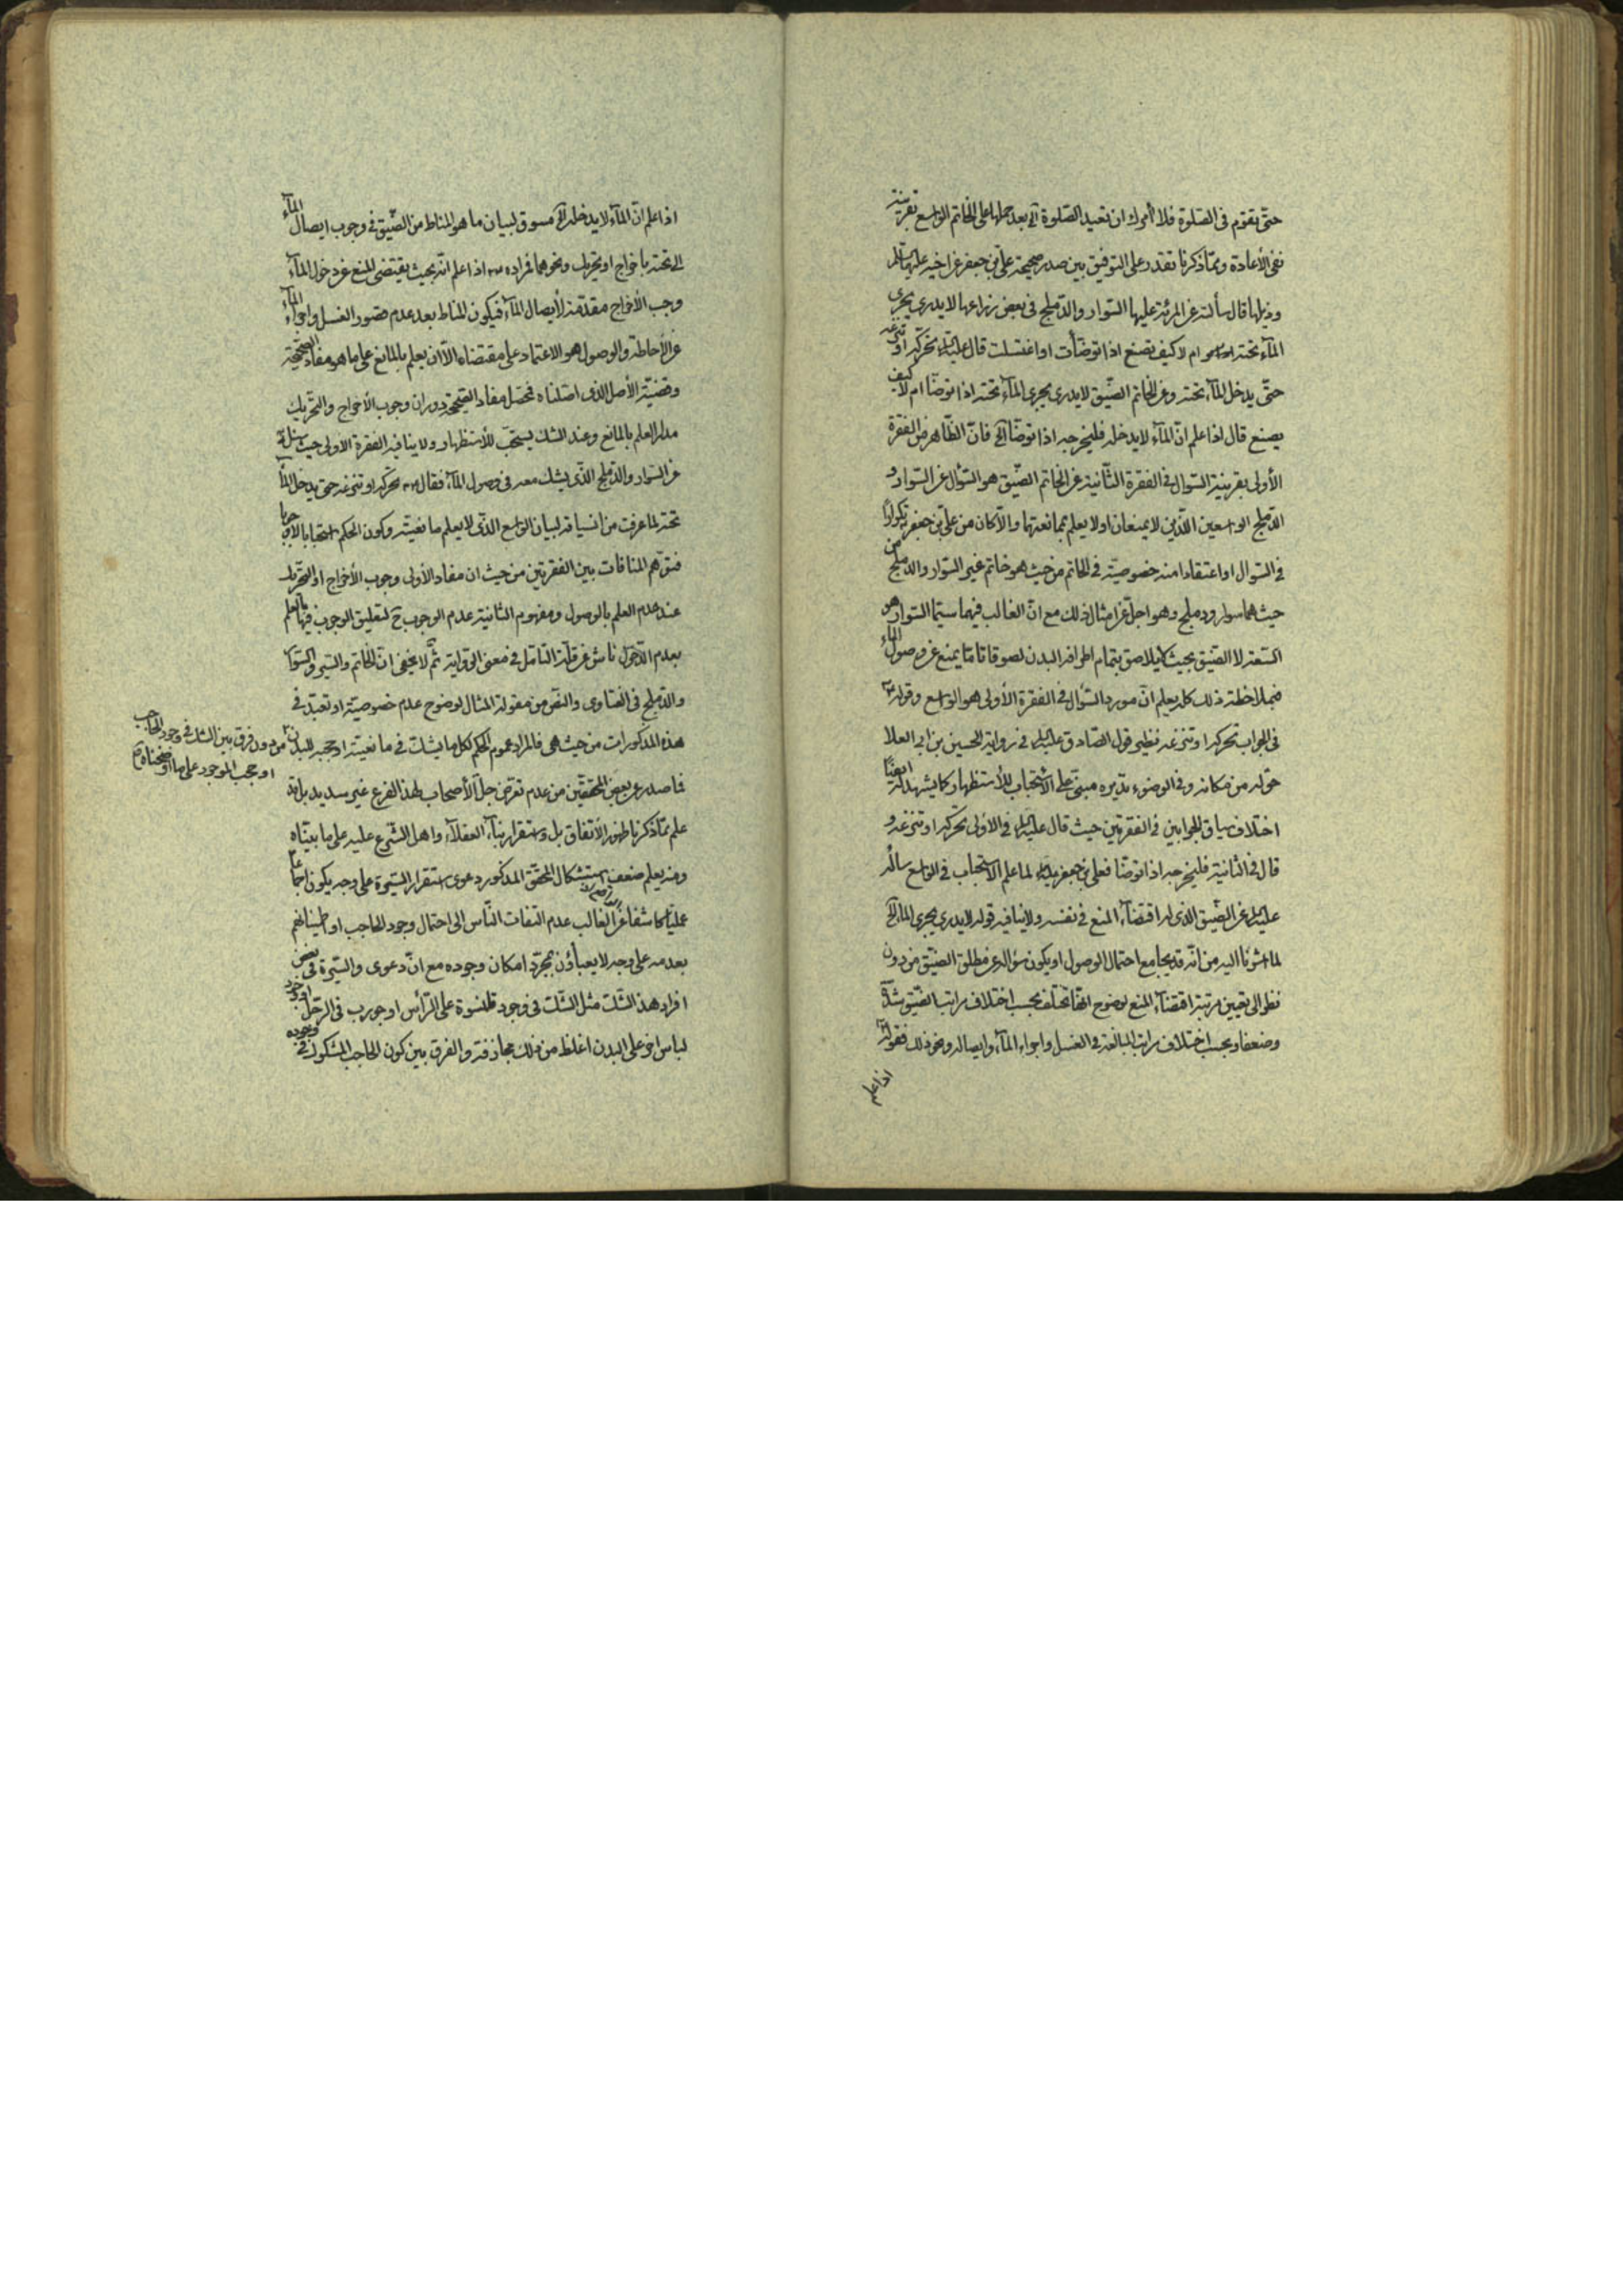 حتّى تقوم فى الصّلوة فلا آمرك ان تعيد الصّلوة آه بعد حملها على الخاتم الواسع بقرينة
نفى الأعادة وممّا ذكرنا تقدر على التوفيق بين صدر صحيحة علىّ بن جعفر عن اخيه عليهما السّلم
وذيلها قال سألته عن المرئة عليها السّوار والدّملج فى بعض ذراعها لا يدرى يجرى
المآء تحته ام لا كيف تصنع اذا توضّأت او اغتسلت قال عليه السّلم تحرّكه او تنزعه
حتّى يدخل المآء تحته وعن الخاتم الضّيق لا يدرى يجرى المآء تحته اذا توضّأ ام لا كيف
يصنع قال اذا علم انّ المآء لا يدخله فليخرجه اذا توضّأ آه فانّ الظّاهر من الفقرة
الأولى بقرينة السّوال فى الفقرة الثّانية عن الخاتم الضّيق هو السّؤال عن السّوار و
الدّملج الواسعين اللّذين لا يمنعان او لا يعلم ممانعتهما والّا كان من علىّ بن جعفر تكرارًا
فى السّوال او اعتقادا منه خصوصيّة فى الخاتم من حيث هو خاتم غير السّوار والدّملج من
حيث هما سوار ودملج وهو اجلّ عن امثال ذلك مع انّ الغالب فيهما سيّما السّوار هو
السّعة لا الضّيق بحيث يلاصق بتمام اطرافه البدن لصوقا تامّا يمنع عن وصول الماء
فبملاحظة ذلك كلّه يعلم انّ مورد السّؤال فى الفقرة الأولى هو الواسع وقوله
فى الجواب تحرّكه او تنزعه نظير قول الصّادق عليه السّلم فى رواية الحسين بن ابى العلا
حوّله من مكانه وفى الوضوء تديره مبنىّ على الأستحباب للأستظهار كما يشهد له ايضًا
اختلاف سياق الجوابين فى الفقرتين حيث قال عليه السّلم فى الاولى تحرّكه او تنزعه و
قال فى الثّانية فليخرجه اذا توضّأ فعلىّ بن جعفر لما علم الأستحباب فى الواسع سأله
عليه السّلم عن الضّيق الّذى له اقتضآء المنع فى نفسه ولا ينافيه قوله لا يدرى يجرى المآء آه
لما اشرنا اليه من انّه قد يجامع احتمال الوصول او يكون سؤاله عن مطلق الضّيق من دون
نظر الى تعيين مرتبة اقتضآء المنع لوضوح انّها تختلف بحسب اختلاف مراتب الضّيق شدّة
وضعفا وبحسب اختلاف مراتب المبالغة فى الغسل واجراء المآء وايصاله ونحو ذلك فقوله
اذا علم
اذا علم انّ المآء لا يدخله آه مسوق لبيان ما هو المناط من الضّيق فى وجوب ايصال المآء
الى تحته باخراج او تحريك ونحوهما فمراده اذا علم انّه بحيث يقتضى المنع عن دخول المآء
وجب الأخراج مقدّمة لأيصال المآء فيكون المناط بعد عدم قصور الغسل واجراء المآء
عن الأحاطة والوصول هو الاعتماد على مقتضاه الّا ان يعلم بالمانع على ما هو مفاد الصّحيحة
وقضيّة الأصل الّذى اصّلناه فمحصّل مفاد الصّحيحة دوران وجوب الأخراج والتّحريك
مدار العلم بالمانع وعند الشك يستحبّ للأستظهار ولا ينافيه الفقرة الاولى حيث سئله
عن السّوار والدّملج الّذى يشك معه فى وصول المآء فقال تحرّكه او تنزعه حتى يدخل المآء
تحته لما عرفت من انسياقه لبيان الواسع الّذى لا يعلم مانعيّته وكون الحكم استحبابا لا وجوبا
فتوّهم المنافات بين الفقرتين من حيث ان مفاد الأولى وجوب الأخراج او التّحريك
عند عدم العلم بالوصول ومفهوم الثانية عدم الوجوب ح لتعليق الوجوب فيها بالعلم
بعدم الدّخول ناش عن قلّة التّامّل فى معنى الرّواية ثمّ لا يخفى انّ الخاتم والسّير والسّوار
والدّملج فى الفتاوى والنّص من مقولة المثال لوضوح عدم خصوصيّة او تعبّد فى
هذه المذكورات من حيث هى فالمراد عموم الحكم لكل ما يشك فى مانعيّته او حجبه للبدن
من دون فرق بين الشك فى وجود الحاجب
او حجب الموجود على ما اوضحناه
فما صدر عن بعض المحققين من عدم تعرّض جلّ الأصحاب لهذا الفرع غير سديد بل قد
علم ممّا ذكرنا ظهور الأتفاق بل واستقرار بنآء العقلآء واهل الشّرع عليه على ما بيّناه
ومنه يعلم ضعف استشكال المحقّق المذكور دعوى استقرار السّيرة على وجه يكون اجماعا
عمليّا كاشفا عن الغالب عدم التفات النّاس الى احتمال وجود الحاجب او اطمينانهم
بعدمه على وجه لا يعبأون بمجرّد امكان وجوده مع انّ دعوى السّيرة فى بعض
افراد هذ الشّك مثل الشّك فى وجود قلنسوة على الرّأس او جورب فى الرّجل او وجود
لباس اخر على البدن اغلظ من ذلك مجازفة والفرق بين كون الحاجب المشكوك فى وجوده